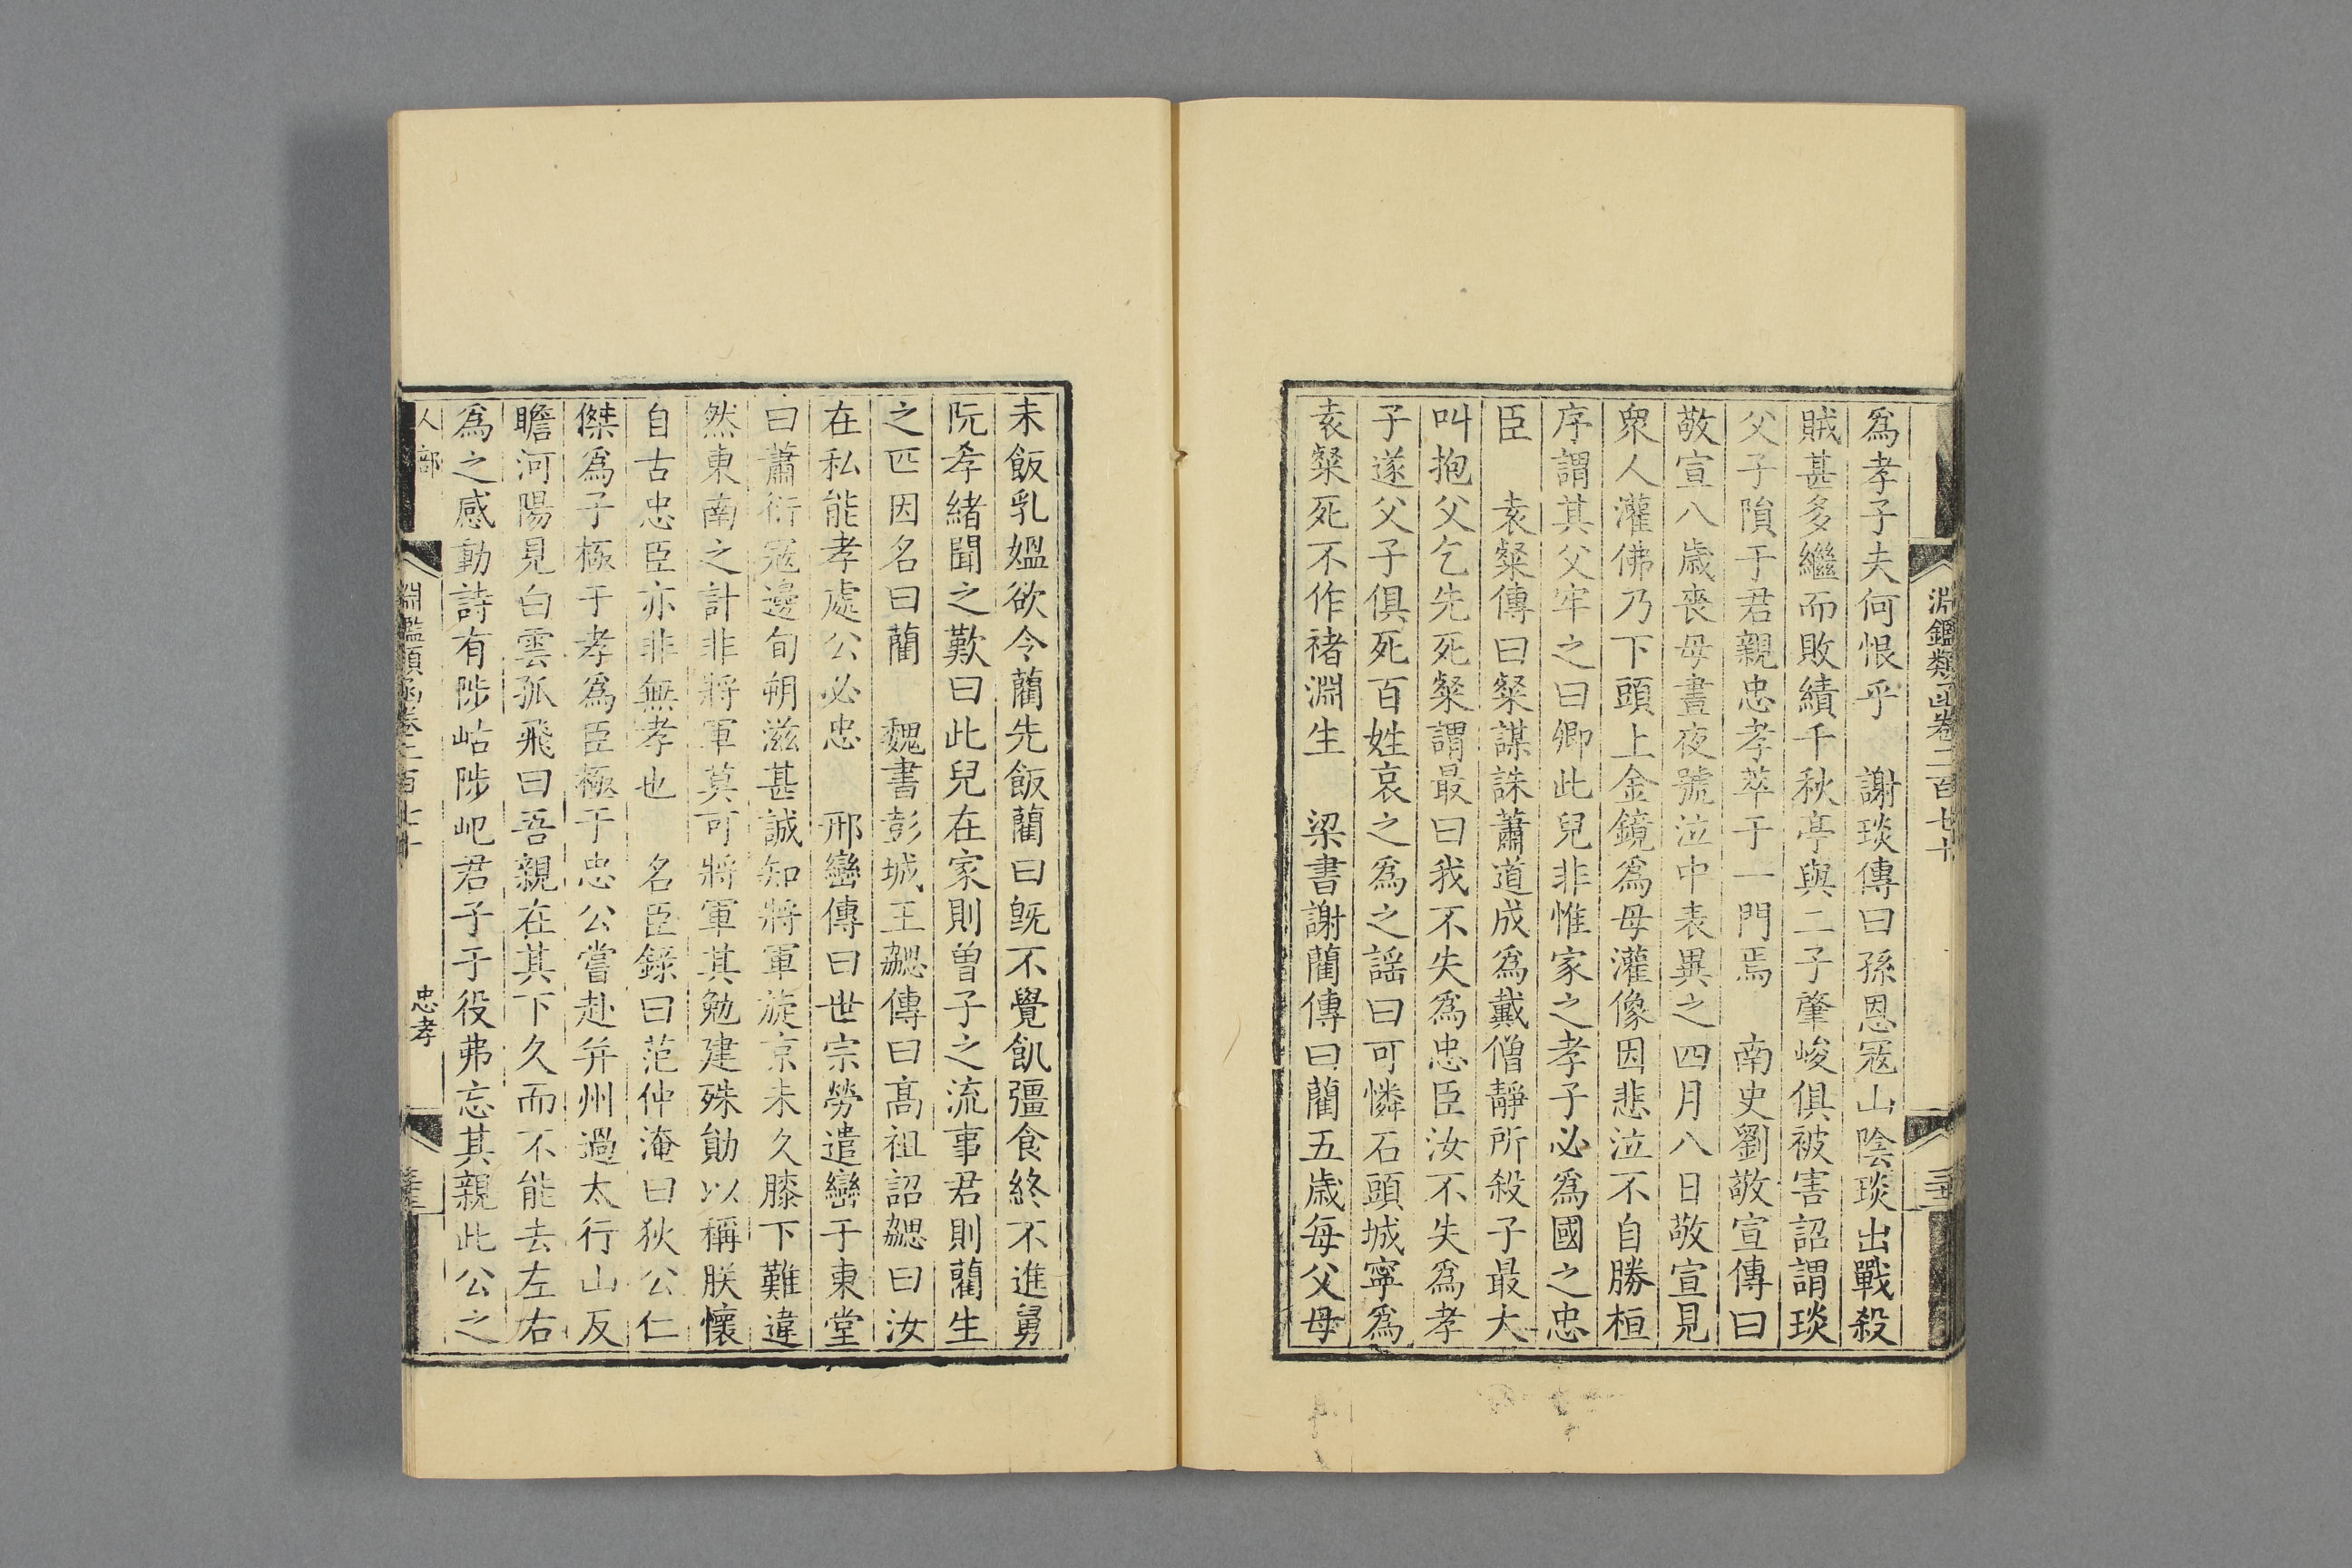 淵鑑類函卷二百七十
爲孝子夫何恨乎　謝琰傳曰孫恩寇山陰琰出戰殺
賊甚多繼而敗績千秋亭與二子肇峻俱被害詔謂琰
父子隕于君親忠孝萃于一門焉　南史劉敬宣傳曰
敬宣八歲喪母晝夜號泣中表異之四月八日敬宣見
衆人灌佛乃下頭上金鏡爲母灌像因悲泣不自勝桓
序謂其父牢之曰卿此兒非惟家之孝子必爲國之忠
臣　袁粲傳曰粲謀誅蕭道成爲戴僧靜所殺子最大
叫抱父乞先死粲謂最曰我不失爲忠臣汝不失爲孝
子遂父子俱死百姓哀之爲之謡曰可憐石頭城寧爲
袁粲死不作褚淵生　梁書謝藺傳曰藺五歲每父母
未飯乳媪欲令藺先飯藺曰旣不覺飢彊食終不進舅
阮孝緒聞之歎曰此兒在家則曽子之流事君則藺生
之匹因名曰藺　魏書彭城王勰傳曰髙祖詔勰曰汝
在私能孝處公必忠　邢巒傳曰世宗勞遣巒于東堂
曰蕭衍寇邊旬朔滋甚誠知將軍旋京未久膝下難違
然東南之計非將軍莫可將軍其勉建殊勛以稱朕懷
自古忠臣亦非無孝也　名臣錄曰范仲淹曰狄公仁
傑爲子極于孝爲臣極于忠公嘗赴并州過太行山反
瞻河陽見白雲孤飛曰吾親在其下久而不能去左右
爲之感動詩有陟岵陟屺君子于役弗忘其親此公之
人部
淵鑑類函卷二百七十
忠孝